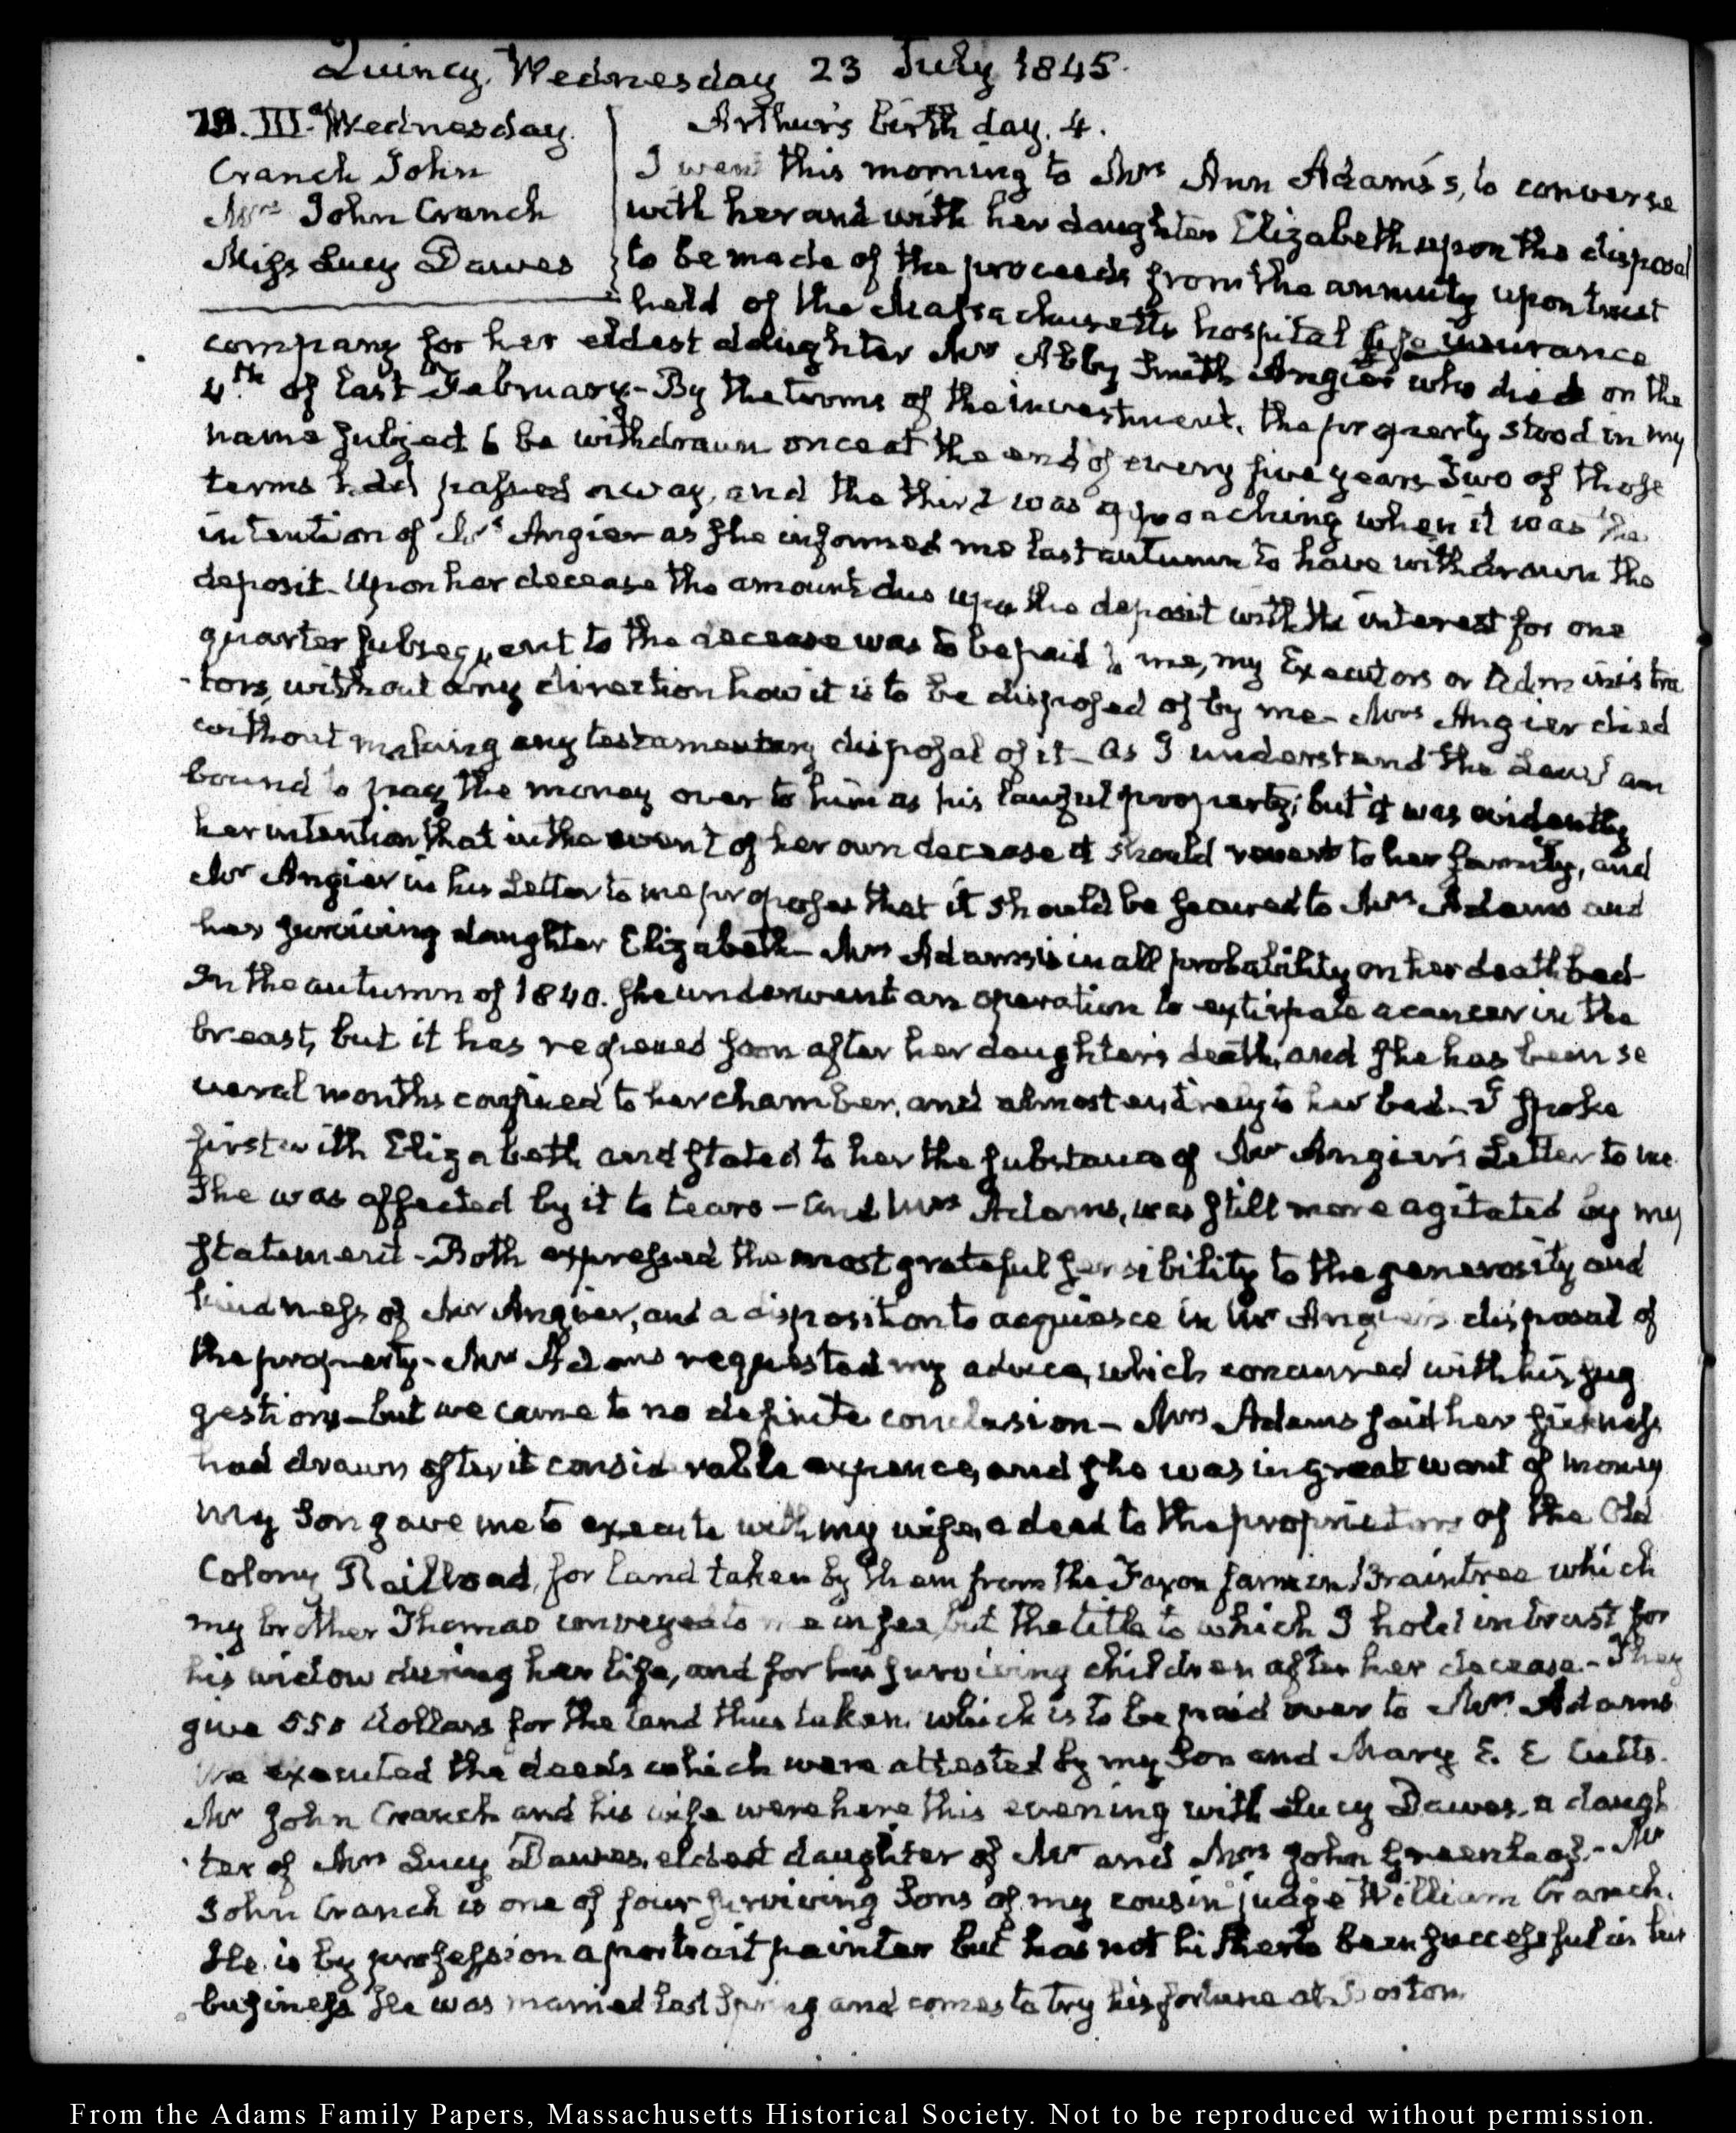 Quincy. Wednesday 23 July 1845.
III. Wednesday.
Cranch John
Mrs John Cranch
Miss Lucy Dawes
Arthur's birth day. 4.
I went this morning to Mrs Ann Adams's, to converse
with her and with her daughter Elizabeth upon the disposal
to be made of the proceeds from the annuity upon trust
held of the Massachusetts hospital life insurance
company for her eldest daughter Mrs Abby Smith Angier who died on the
4th of last February - By the terms of the investment, the property stood in my
name subject to be withdrawn once at the end of every five years Two of those
terms had passed away, and the third was approaching when it was the
intention of Mrs Angier as she informed me last autumn to have withdrawn the
deposit. Upon her decease the amount due upon the deposit with the interest for one
quarter subsequent to the decease was to be paid to me, my Executors or Administra
-tors, without any direction how it is to be disposed of by me - Mrs Angier died
without making any testamentary disposal of it - As I understand the Law I am
bound to pay the money over to him as his lawful property; but it was evidently
her intention that in the event of her own decease it should revert to her family, and
Mr Angier in his Letter to me proposes that it should be secured to Mrs Adams and
her surviving daughter Elizabeth - Mrs Adams is in all probability on her death bed
In the autumn of 1840. she underwent an operation to extirpate a cancer in the
breast, but it has re soon after her daughter's death, and she has been se
veral months confined to her chamber, and almost entirely to her bed - I spoke
first with Elizabeth and stated to her the substance of Mr Angier's Letter to me
She was affected by it to tears - and Mrs Adams, was still more agitated by my
statement - Both expressed the most grateful sensibility to the generosity and
kindness of Mr Angier, and a disposition to acquiesce in Mr Angier's disposal of
the property - Mrs Adams requested my advice, which concurred with his sug
gestions - but we came to no definite conclusion - Mrs Adams said her sickness
had drawn after it considerable expence, and she was in great want of money
My Son gave me to execute with my wife, a deed to the proprietors of the Old
Colony Railroad, for land taken by them from the Faxon farm in Braintree which
my brother Thomas conveyed to me in fee, but the title to which I hold in trust for
his widow during her life, and for his surviving children after her decease - They
give 550 dollars for the land thus taken, which is to be paid over to Mrs Adams
We executed the deeds which were attested by my Son and Mary E. E Cutts.
Mr John Cranch and his wife were here this evening with Lucy Dawes, a daugh
ter of Mrs Lucy Dawes, eldest daughter of Mr and Mrs John Greenleaf - Mr
John Cranch is one of four surviving Sons of my cousin judge William Cranch.
He is by profession a portrait painter but has not hitherto been successful in his
business He was married last Spring and comes to try his fortune at Boston.
From the Adams Family Papers, Massachusetts Historical Society. Not to be reproduced without permission.